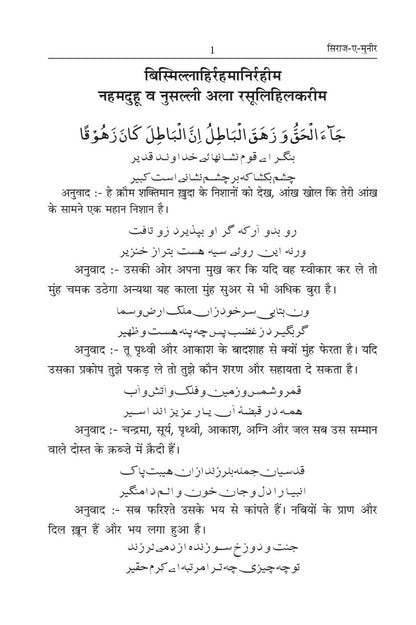 1
सिराज-ए-मुनीर
बिस्मिल्लाहिर्रहमानिर्रहीम
नहमदुहू व नुसल्ली अला रसूलिहिलकरीम
جَآءَ الْحَقُّ وَ زَهَقَ الْبَاطِلُ اِنَّ الْبَاطِلَ كَانَ زَهُوْقًا
بنگر اے قوم نشانہائے خداوند قدیر
چشم بکشا کہ بر چشم نشانی است کبیر
अनुवाद :- हे क़ौम शक्तिमान ख़ुदा के निशानों को देख, आंख खोल कि तेरी आंख
के सामने एक महान निशान है।
رو بدو آر کہ گر او بپذیرد رو تافت
ورنہ این روئے سیہ هست بتر از خنزیر
अनुवाद :- उसकी ओर अपना मुख कर कि यदि वह स्वीकार कर ले तो
मुंह चमक उठेगा अन्यथा यह काला मुंह सुअर से भी अधिक बुरा है।
ون بتابی سر خود زان ملک ارض و سما
گر بگیرد ز غضب پس چه پنه هست و ظهیر
अनुवाद :- तू पृथ्वी और आकाश के बादशाह से क्यों मुंह फेरता है। यदि
उसका प्रकोप तुझे पकड़ ले तो तुझे कौन शरण और सहायता दे सकता है।
قمر و شمس و زمین و فلک و آتش و آب
همه در قبضۂ آن یار عزیز اند اسیر
अनुवाद :- चन्द्रमा, सूर्य, पृथ्वी, आकाश, अग्नि और जल सब उस सम्मान
वाले दोस्त के क़ब्ज़े में क़ैदी हैं।
قدسیان جمله بلرزند ازان هیبت پاک
انبیا را دل و جان خون و الم دامنگیر
अनुवाद :- सब फरिश्ते उसके भय से कांपते हैं। नबियों के प्राण और
दिल ख़ून हैं और भय लगा हुआ है।
جنت و دوزخ سوزنده ازو می لرزند
تو چه چیزی چه ترا مرتبه اے کرم حقیر